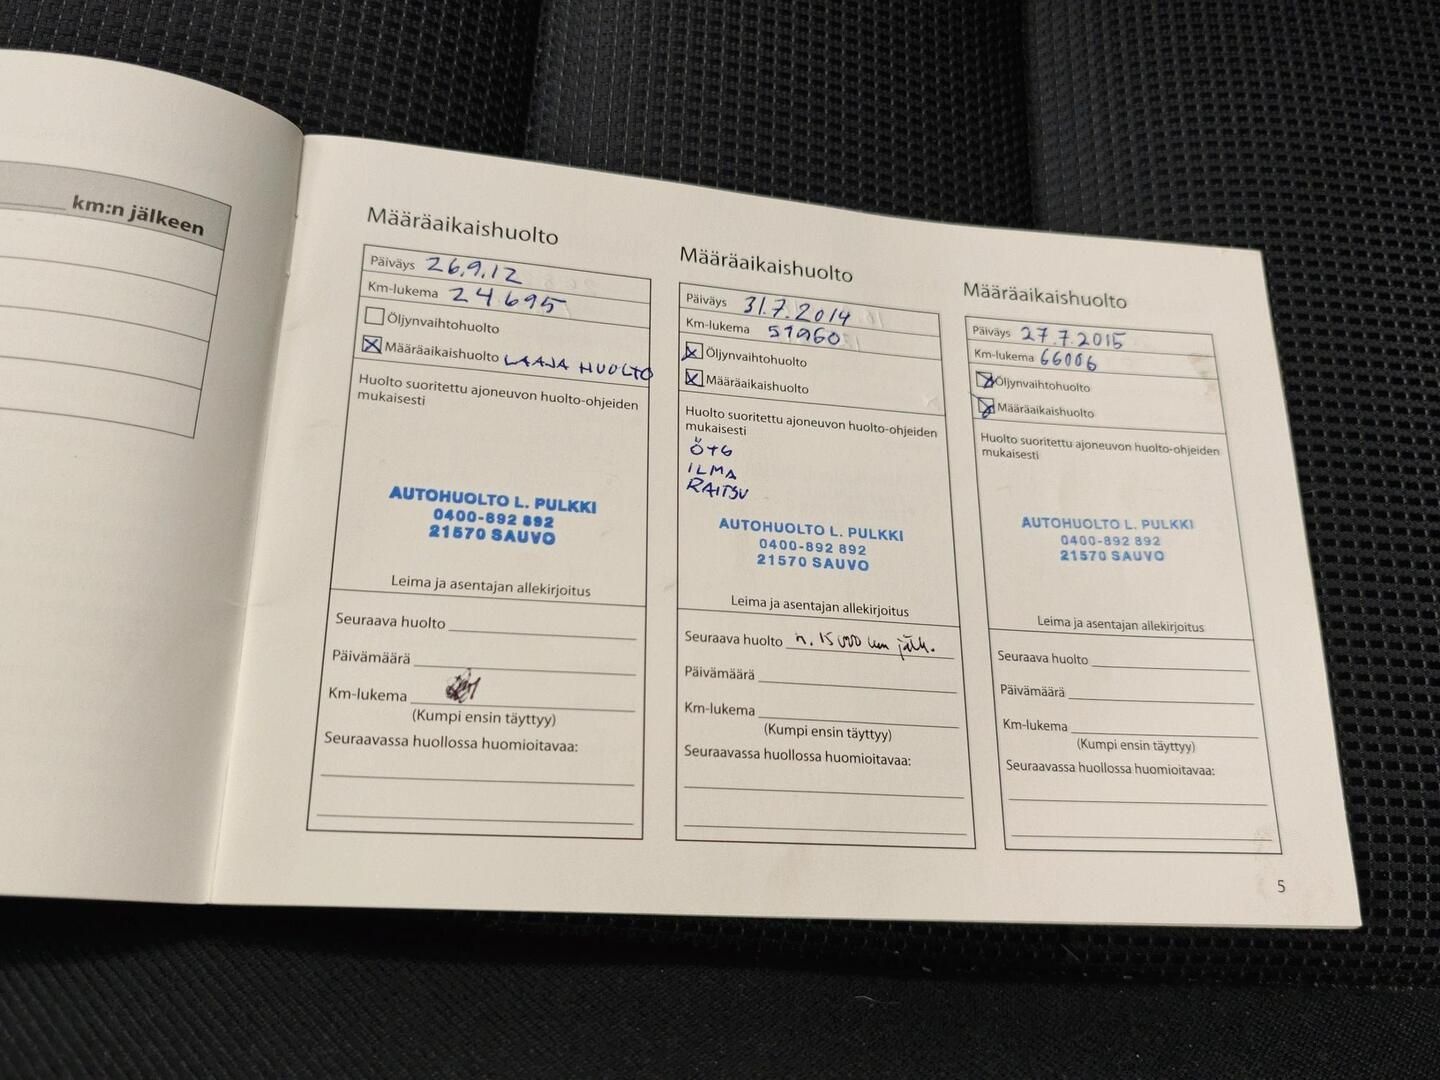 km:n jälkeen
Määräaikaishuolto
Päiväys 26.9.12
Km-lukema 24695
Öljynvaihtohuolto
Määräaikaishuolto LAAJA HUOLTO
Huolto suoritettu ajoneuvon huolto-ohjeiden
mukaisesti
AUTOHUOLTO L. PULKKI
0400-892 892
21570 SAUVO
Leima ja asentajan allekirjoitus
Seuraava huolto
Päivämäärä
Km-lukema
(Kumpi ensin täyttyy)
Seuraavassa huollossa huomioitavaa:
Määräaikaishuolto
Päiväys 31.7.2014
Km-lukema 51960
Öljynvaihtohuolto
Määräaikaishuolto
Huolto suoritettu ajoneuvon huolto-ohjeiden
mukaisesti
Ö+S
ILMA
RAITSU
AUTOHUOLTO L. PULKKI
0400-892 892
21570 SAUVO
Leima ja asentajan allekirjoitus
Seuraava huolto n. 15000 km jälk.
Päivämäärä
Km-lukema
(Kumpi ensin täyttyy)
Seuraavassa huollossa huomioitavaa:
Määräaikaishuolto
Päiväys 27.7.2015
Km-lukema 66006
Öljynvaihtohuolto
Määräaikaishuolto
Huolto suoritettu ajoneuvon huolto-ohjeiden
mukaisesti
AUTOHUOLTO L. PULKKI
0400-892 892
21570 SAUVO
Leima ja asentajan allekirjoitus
Seuraava huolto
Päivämäärä
Km-lukema
(Kumpi ensin täyttyy)
Seuraavassa huollossa huomioitavaa:
5